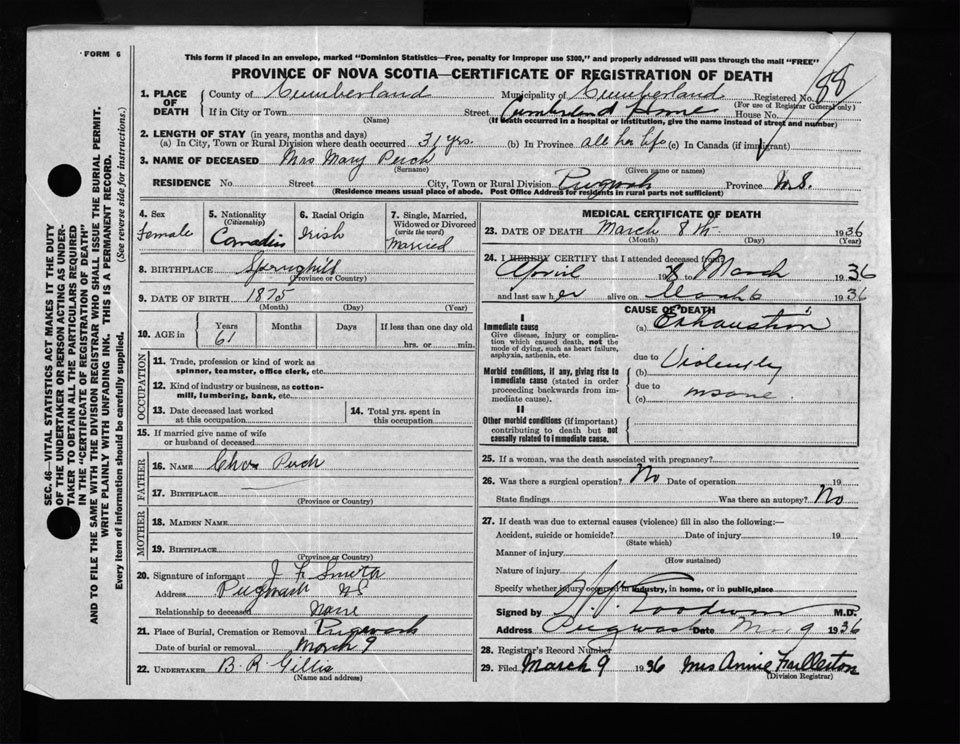 FORM 6
This form if placed in an envelope, marked "Dominion Statistics—Free, penalty for improper use $300," and properly addressed will pass through the mail "FREE"
PROVINCE OF NOVA SCOTIA—CERTIFICATE OF REGISTRATION OF DEATH
1. PLACE OF DEATH
County of Cumberland Municipality of Cumberland Registered No. 88
(For use of Registrar General only)
If in City or Town Street Cumberland Home House No.
(Name) (If death occurred in a hospital or institution, give the name instead of street and number)
2. LENGTH OF STAY (in years, months and days)
(a) In City, Town or Rural Division where death occurred 31 yrs. (b) In Province all her life (c) In Canada (if immigrant)
3. NAME OF DECEASED Mrs Mary
(Surname) (Given name or names)
RESIDENCE No. Street City, Town or Rural Division Pugwash Province N.S.
(Residence means usual place of abode. Post Office Address for residents in rural parts not sufficient)
4. Sex
Female
5. Nationality
(Citizenship)
Canadian
6. Racial Origin
Irish
7. Single, Married, Widowed or Divorced
(write the word)
Married
8. BIRTHPLACE Springhill
(Province or Country)
9. DATE OF BIRTH 1875
(Month) (Day) (Year)
10. AGE in
Years Months Days If less than one day old
61 hrs. or min.
OCCUPATION
11. Trade, profession or kind of work as
spinner, teamster, office clerk, etc.
12. Kind of industry or business, as cotton-
mill, lumbering, bank, etc.
13. Date deceased last worked
at this occupation
14. Total yrs. spent in
this occupation
15. If married give name of wife
or husband of deceased
FATHER
16. NAME Chas
17. BIRTHPLACE
(Province or Country)
MOTHER
18. MAIDEN NAME
19. BIRTHPLACE
(Province or Country)
20. Signature of informant J. F. Smith
Address Pugwash NS
Relationship to deceased None
21. Place of Burial, Cremation or Removal Pugwash
Date of burial or removal March 9
22. UNDERTAKER B. R. Gillis
(Name and address)
MEDICAL CERTIFICATE OF DEATH
23. DATE OF DEATH March 8th 1936
(Month) (Day) (Year)
24. I HEREBY CERTIFY that I attended deceased from
April 19 to March 1936
and last saw her alive on March 6 1936
CAUSE OF DEATH
I
Immediate cause
Give disease, injury or complica-
tion which caused death, not the
mode of dying, such as heart failure,
asphyxia, asthenia, etc.
(a) Exhaustion
due to
Morbid conditions, if any, giving rise to
immediate cause (stated in order
proceeding backwards from im-
mediate cause).
(b) Violently
due to
(c) insane
II
Other morbid conditions (if important)
contributing to death but not
causally related to immediate cause.
25. If a woman, was the death associated with pregnancy?
26. Was there a surgical operation? No Date of operation 19
State findings Was there an autopsy? No
27. If death was due to external causes (violence) fill in also the following:—
Accident, suicide or homicide? Date of injury 19
(State which)
Manner of injury
(How sustained)
Nature of injury
Specify whether injury occurred in industry, in home, or in public place
Signed by Goodwin M.D.
Address Pugwash Date Mar 9 1936
28. Registrar's Record Number
29. Filed March 9 1936 Mrs Annie
(Division Registrar)
SEC. 46—VITAL STATISTICS ACT MAKES IT THE DUTY
OF THE UNDERTAKER OR PERSON ACTING AS UNDER-
TAKER TO OBTAIN ALL THE PARTICULARS REQUIRED
IN THE "CERTIFICATE OF REGISTRATION OF DEATH"
AND TO FILE THE SAME WITH THE DIVISION REGISTRAR WHO SHALL ISSUE THE BURIAL PERMIT.
WRITE PLAINLY WITH UNFADING INK. THIS IS A PERMANENT RECORD.
Every item of information should be carefully supplied. (See reverse side for instructions.)